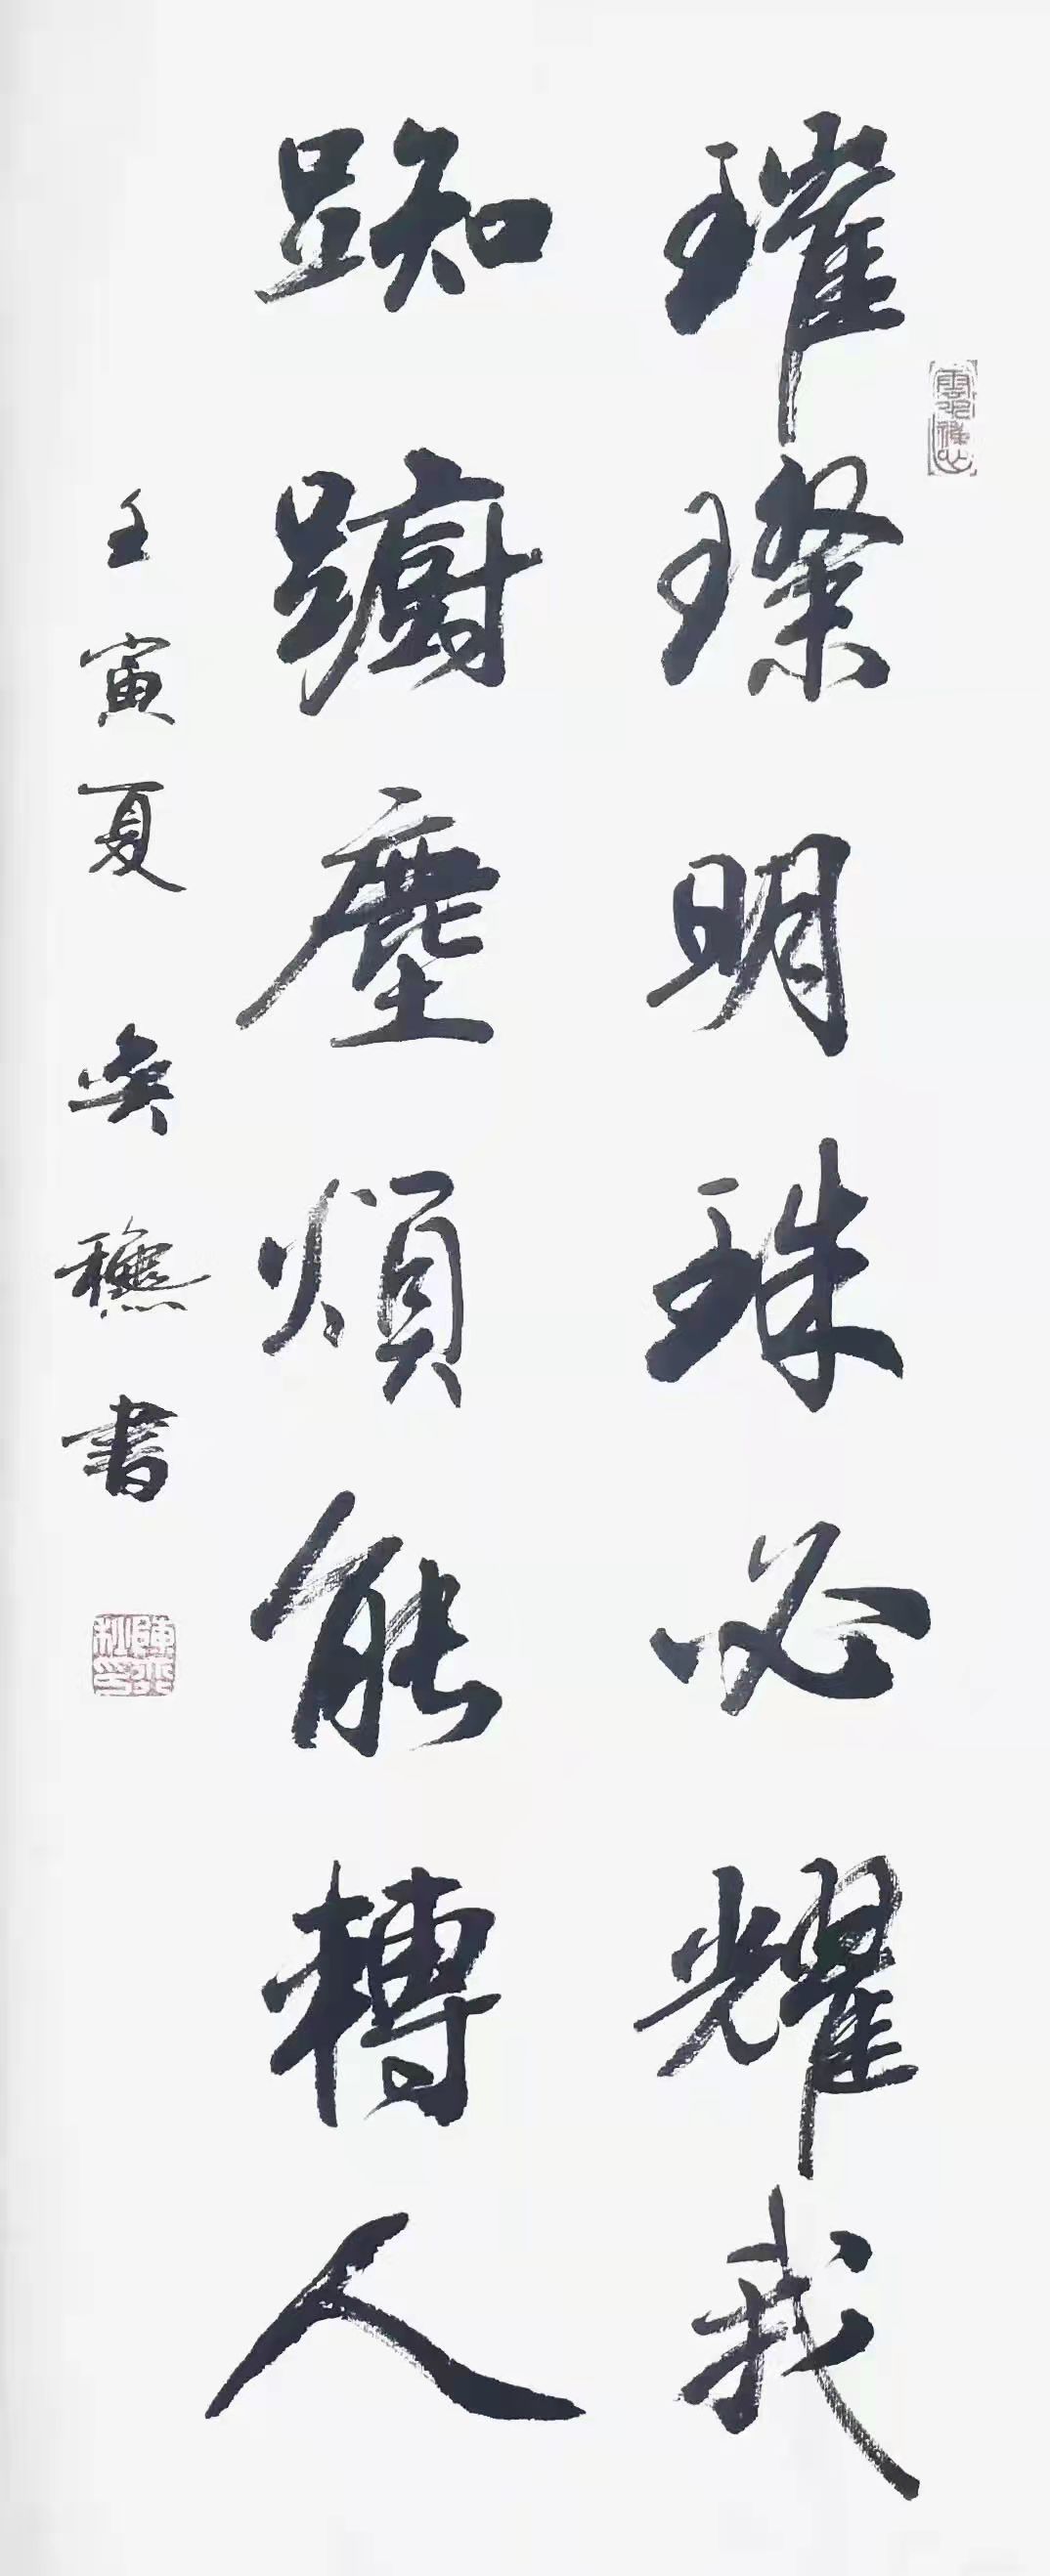 璀璨明珠必耀我
踟躕塵煩能轉人
壬寅夏 奕穗書